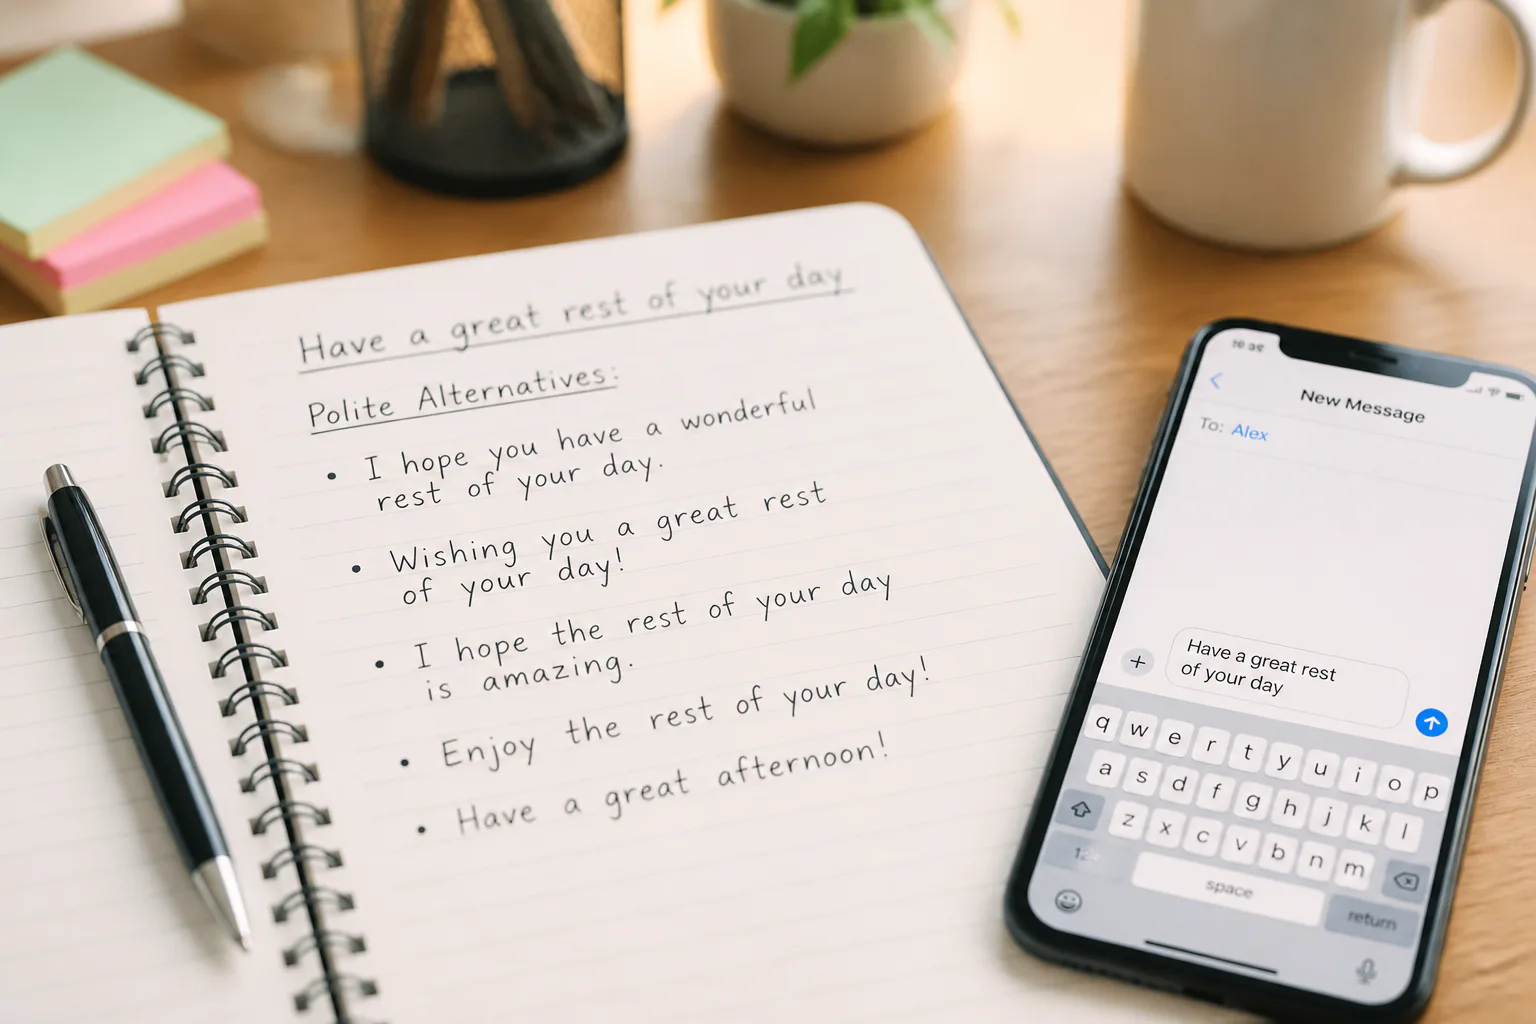 Have a great rest of your day
Polite Alternatives:
• I hope you have a wonderful
rest of your day.
• Wishing you a great rest
of your day!
• I hope the rest of your day
is amazing.
• Enjoy the rest of your day!
• Have a great afternoon!
New Message
To: Alex
Have a great rest
of your day
q w e r t y u i o p
a s d f g h j k l
z x c v b n m
space
return